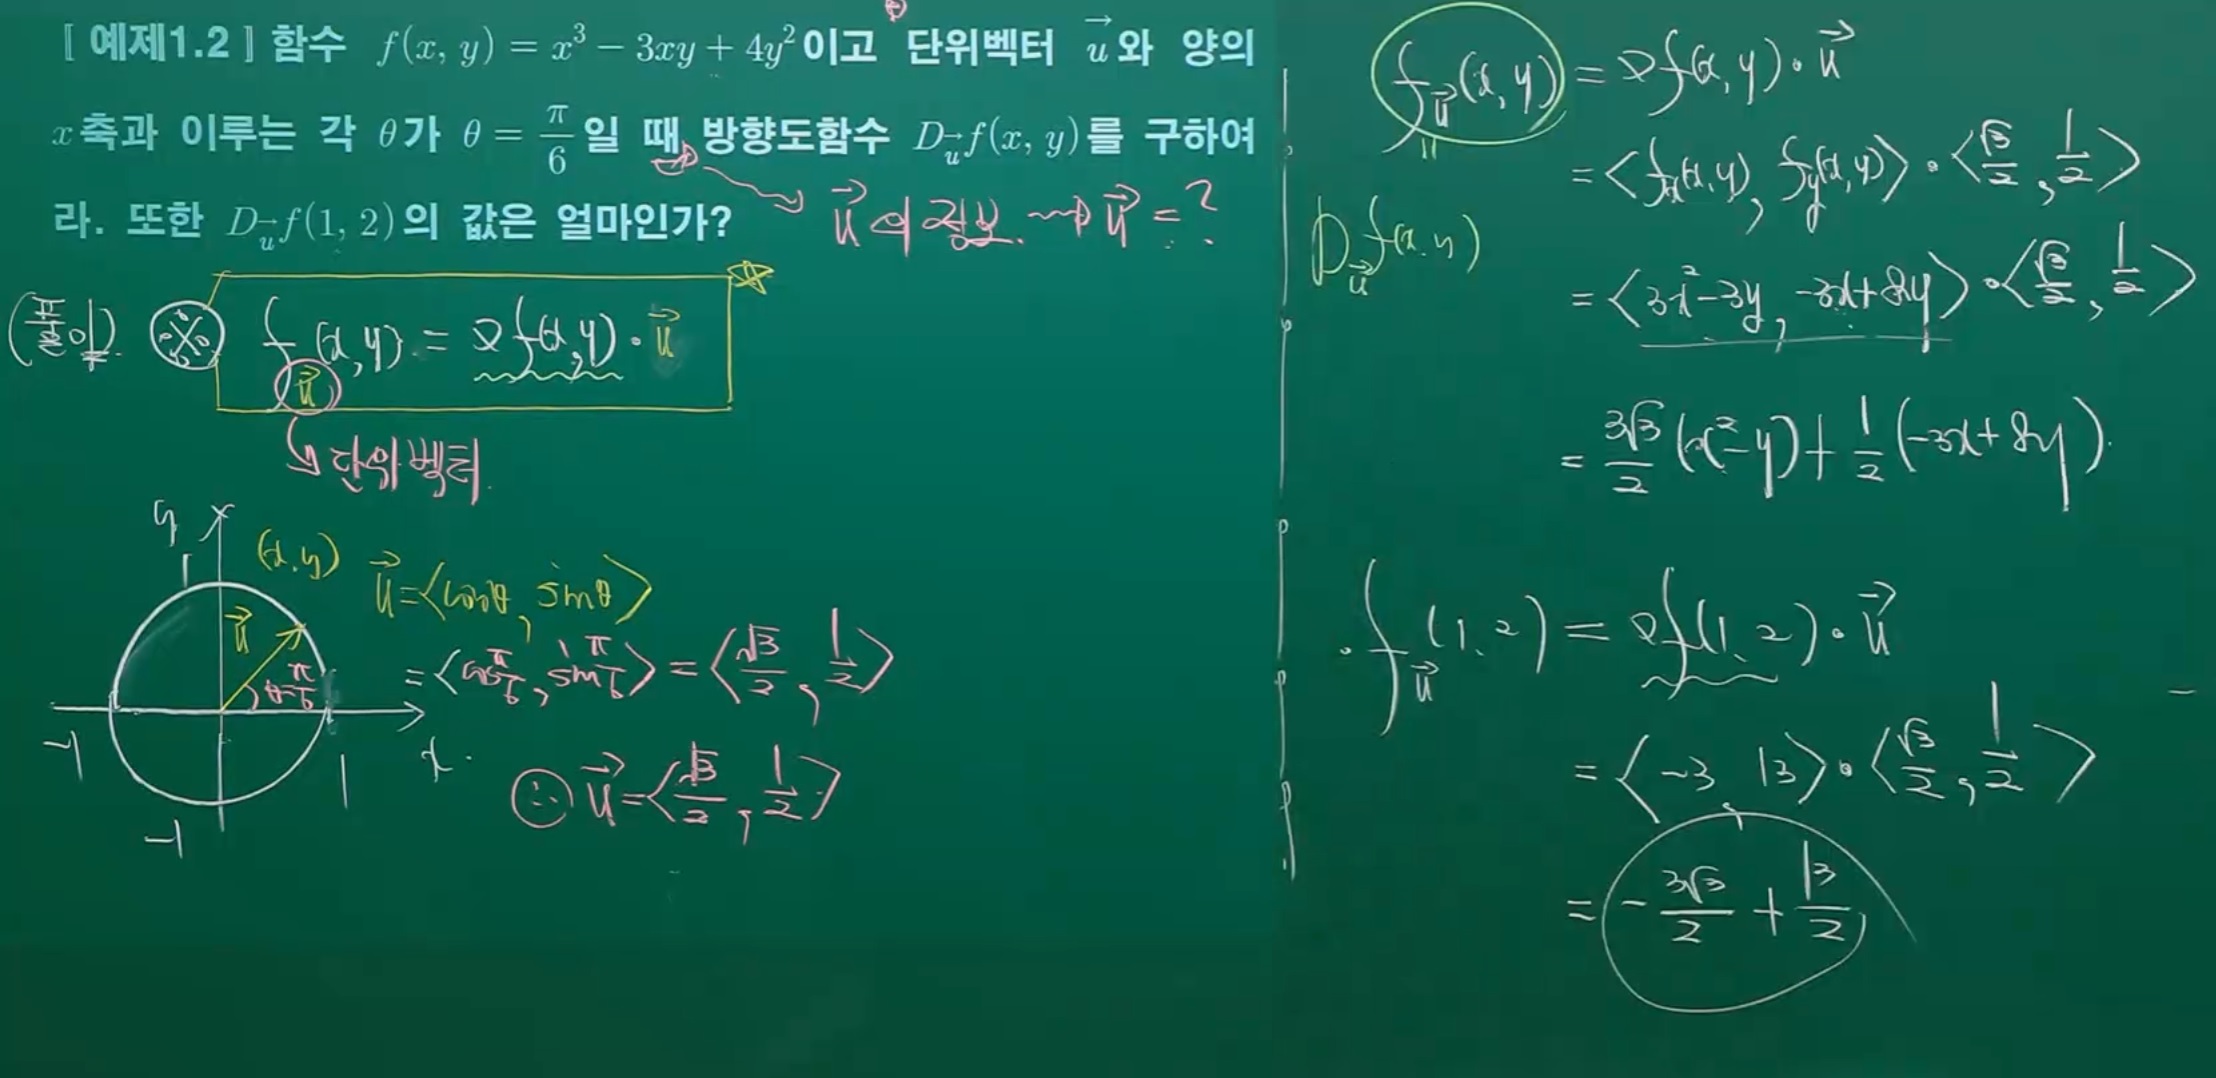 [ 예제1.2 ] 함수 f(x, y) = x³ − 3xy + 4y² 이고 단위벡터 u⃗ 와 양의
x축과 이루는 각 θ가 θ = π/6 일 때, 방향도함수 D_u⃗ f(x, y)를 구하여
라. 또한 D_u⃗ f(1, 2)의 값은 얼마인가?
u⃗ 의 정보. → u⃗ = ?
(풀이). ※ f_u⃗ (x, y) = ∇f(x, y) · u⃗
단위벡터.
y
1
(x, y)
u⃗
θ=π/6
-1
1
x
-1
u⃗ = <cosθ, sinθ>
= <cos π/6, sin π/6> = <√3/2, 1/2>
∴ u⃗ = <√3/2, 1/2>
f_u⃗ (x, y) = ∇f(x, y) · u⃗
"
D_u⃗ f(x, y)
= <f_x(x, y), f_y(x, y)> · <√3/2, 1/2>
= <3x²−3y, −3x+8y> · <√3/2, 1/2>
= 3√3/2 (x²−y) + 1/2 (−3x+8y).
· f_u⃗ (1, 2) = ∇f(1, 2) · u⃗
= <−3, 13> · <√3/2, 1/2>
= − 3√3/2 + 13/2